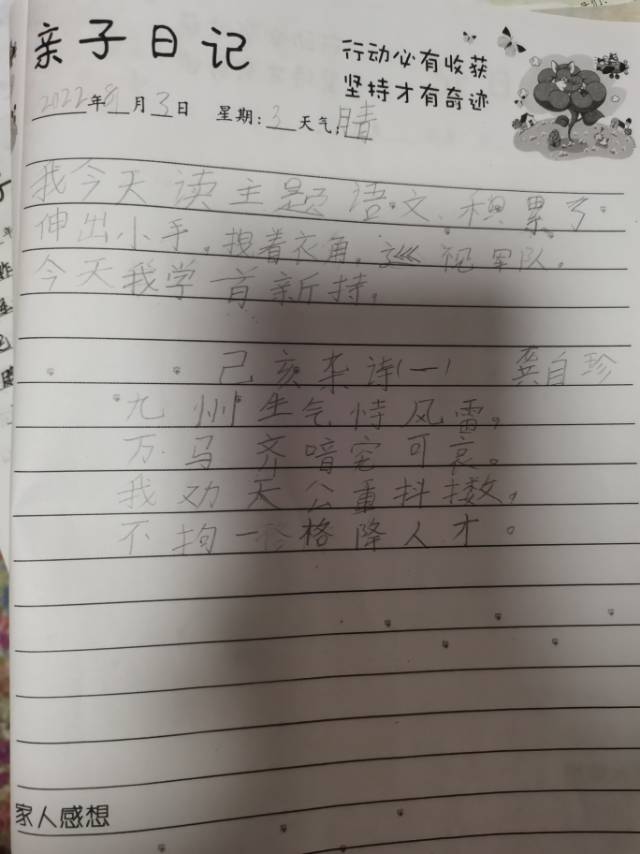 亲子日记
行动必有收获
坚持才有奇迹
2022年8月3日 星期:3 天气:晴
我今天读主题语文,积累了
伸出小手,捏着衣角,巡视军队。
今天我学首新持,
己亥杂诗(一) 龚自珍
九州生气恃风雷,
万马齐喑宅可哀。
我劝天公重抖擞,
不拘一格降人才。
家人感想